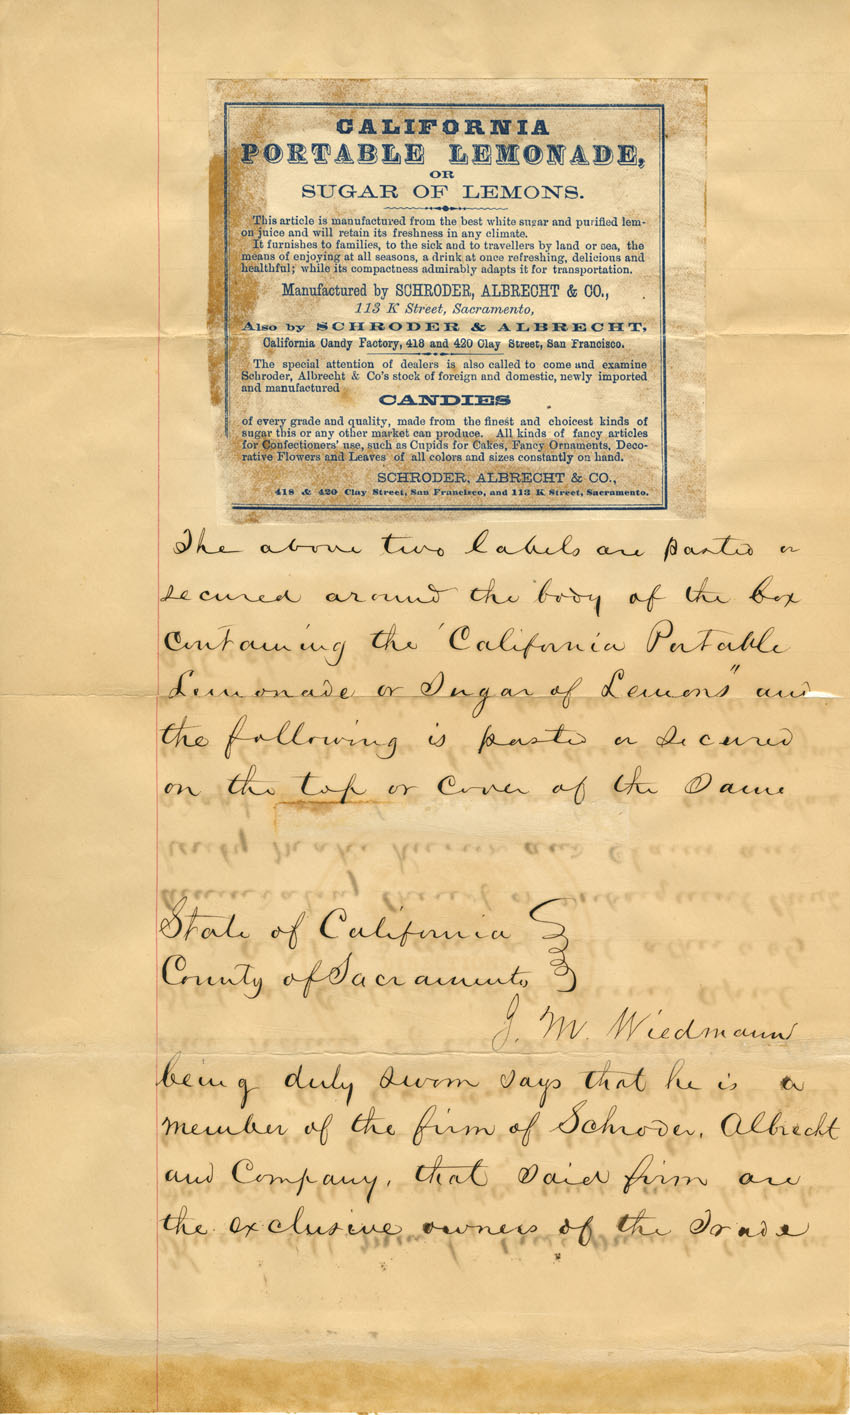 CALIFORNIA
PORTABLE LEMONADE,
OR
SUGAR OF LEMONS.
This article is manufactured from the best white sugar and purified lem-
on juice and will retain its freshness in any climate.
It furnishes to families, to the sick and to travellers by land or sea, the
means of enjoying at all seasons, a drink at once refreshing, delicious and
healthful; while its compactness admirably adapts it for transportation.
Manufactured by SCHRODER, ALBRECHT & CO.,
113 K Street, Sacramento,
Also by SCHRODER & ALBRECHT,
California Candy Factory, 418 and 420 Clay Street, San Francisco.
The special attention of dealers is also called to come and examine
Schroder, Albrecht & Co's stock of foreign and domestic, newly imported
and manufactured
CANDIES
of every grade and quality, made from the finest and choicest kinds of
sugar this or any other market can produce. All kinds of fancy articles
for Confectioners' use, such as Cupids for Cakes, Fancy Ornaments, Deco-
rative Flowers and Leaves of all colors and sizes constantly on hand.
SCHRODER, ALBRECHT & CO.,
418 & 420 Clay Street, San Francisco, and 113 K Street, Sacramento.
The above two labels are pasted or
secured around the body of the box
containing the "California Portable
Lemonade or Sugar of Lemons" and
the following is pasted or secured
on the top or cover of the same
State of California
County of Sacramento
J. M. Wiedmann
being duly sworn says that he is a
member of the firm of Schroder, Albrecht
and Company, that said firm are
the exclusive owners of the Trade